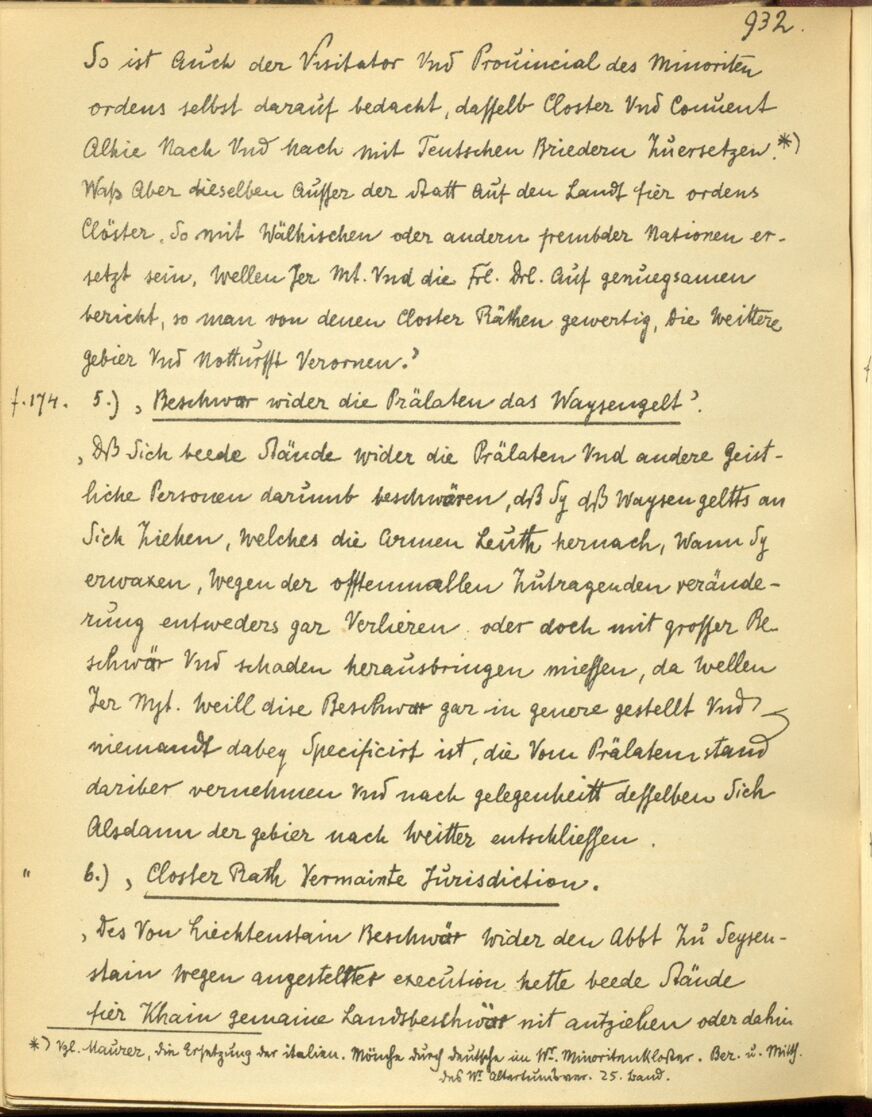 932.
So ist Auch der Visitator Vnd Prouincial des Minoriten
ordens selbst darauf bedacht, dasselb Closter Vnd Conuent
Alhie Nach Vnd Nach mit Teutschen Briedern Zuersetzen.*)
Waß Aber dieselben Ausser der Statt Auf den Landt fier ordens
Clöster, So mit Wälhischen oder andern frembder Nationen er-
setzt sein, Wellen Jer Mt. Vnd die Frl. Drl. Auf genuegsamen
bericht, so man von denen Closter Räthen gewertig, die Weittere
gebier Vnd Notturfft Verornen.'
f. 174. 5.) ‚Beschwar wider die Prälaten das Waysengelt'.
‚Dß Sich beede Stände wider die Prälaten Vnd andere Geist-
liche Personen darumb beschwären, dß Sy dß Waysengeltts an
Sich Ziehen, welches die Armen Leuth hernach, Wann Sy
erwaxen, Wegen der offtenmallen Zutragenden verände-
rung entweders gar Verlieren oder doch mit grosser Be-
schwär Vnd schaden herausbringen miessen, da Wellen
Jer Myt. Weill dise Beschwar gar in genere gestellt Vnd
niemandt dabey Specificirt ist, die Vom Prälatenstand
dariber vernehmen Vnd nach gelegenheitt desselben Sich
Alsdann der gebier nach Weitter entschliessen.
" 6.) ‚Closter Rath Vermainte Jurisdiction.
‚Des Von Liechtenstain Beschwär Wider den Abbt Zu Seysen-
stain Wegen angestelter execution hette beede Stände
fier Khain gemaine Landsbeschwär nit antziehen oder dahin
*) Vgl. Maurer, die Ersetzung der italien. Mönche durch deutsche im Wr. Minoritenkloster. Ber. u. Mitth.
des Wr. Altertumsver. 25. Band.